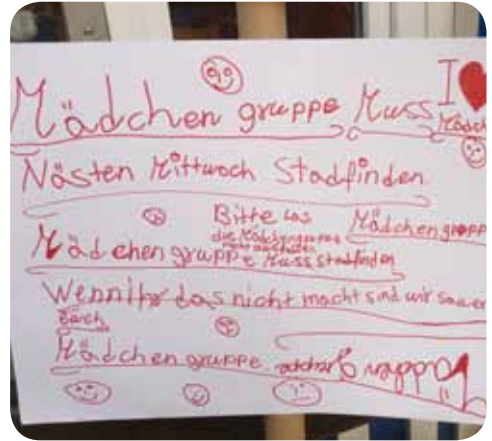 Mädchen gruppe Muss
I ❤
Mädch
Nästen Mittwoch Stadfinden
Bitte las
die
Mädchengrupp
Mädchengruppe Muss stadfinden
Wenn ihr das nicht macht sind wir sauer
Euich
Mädchen gruppe